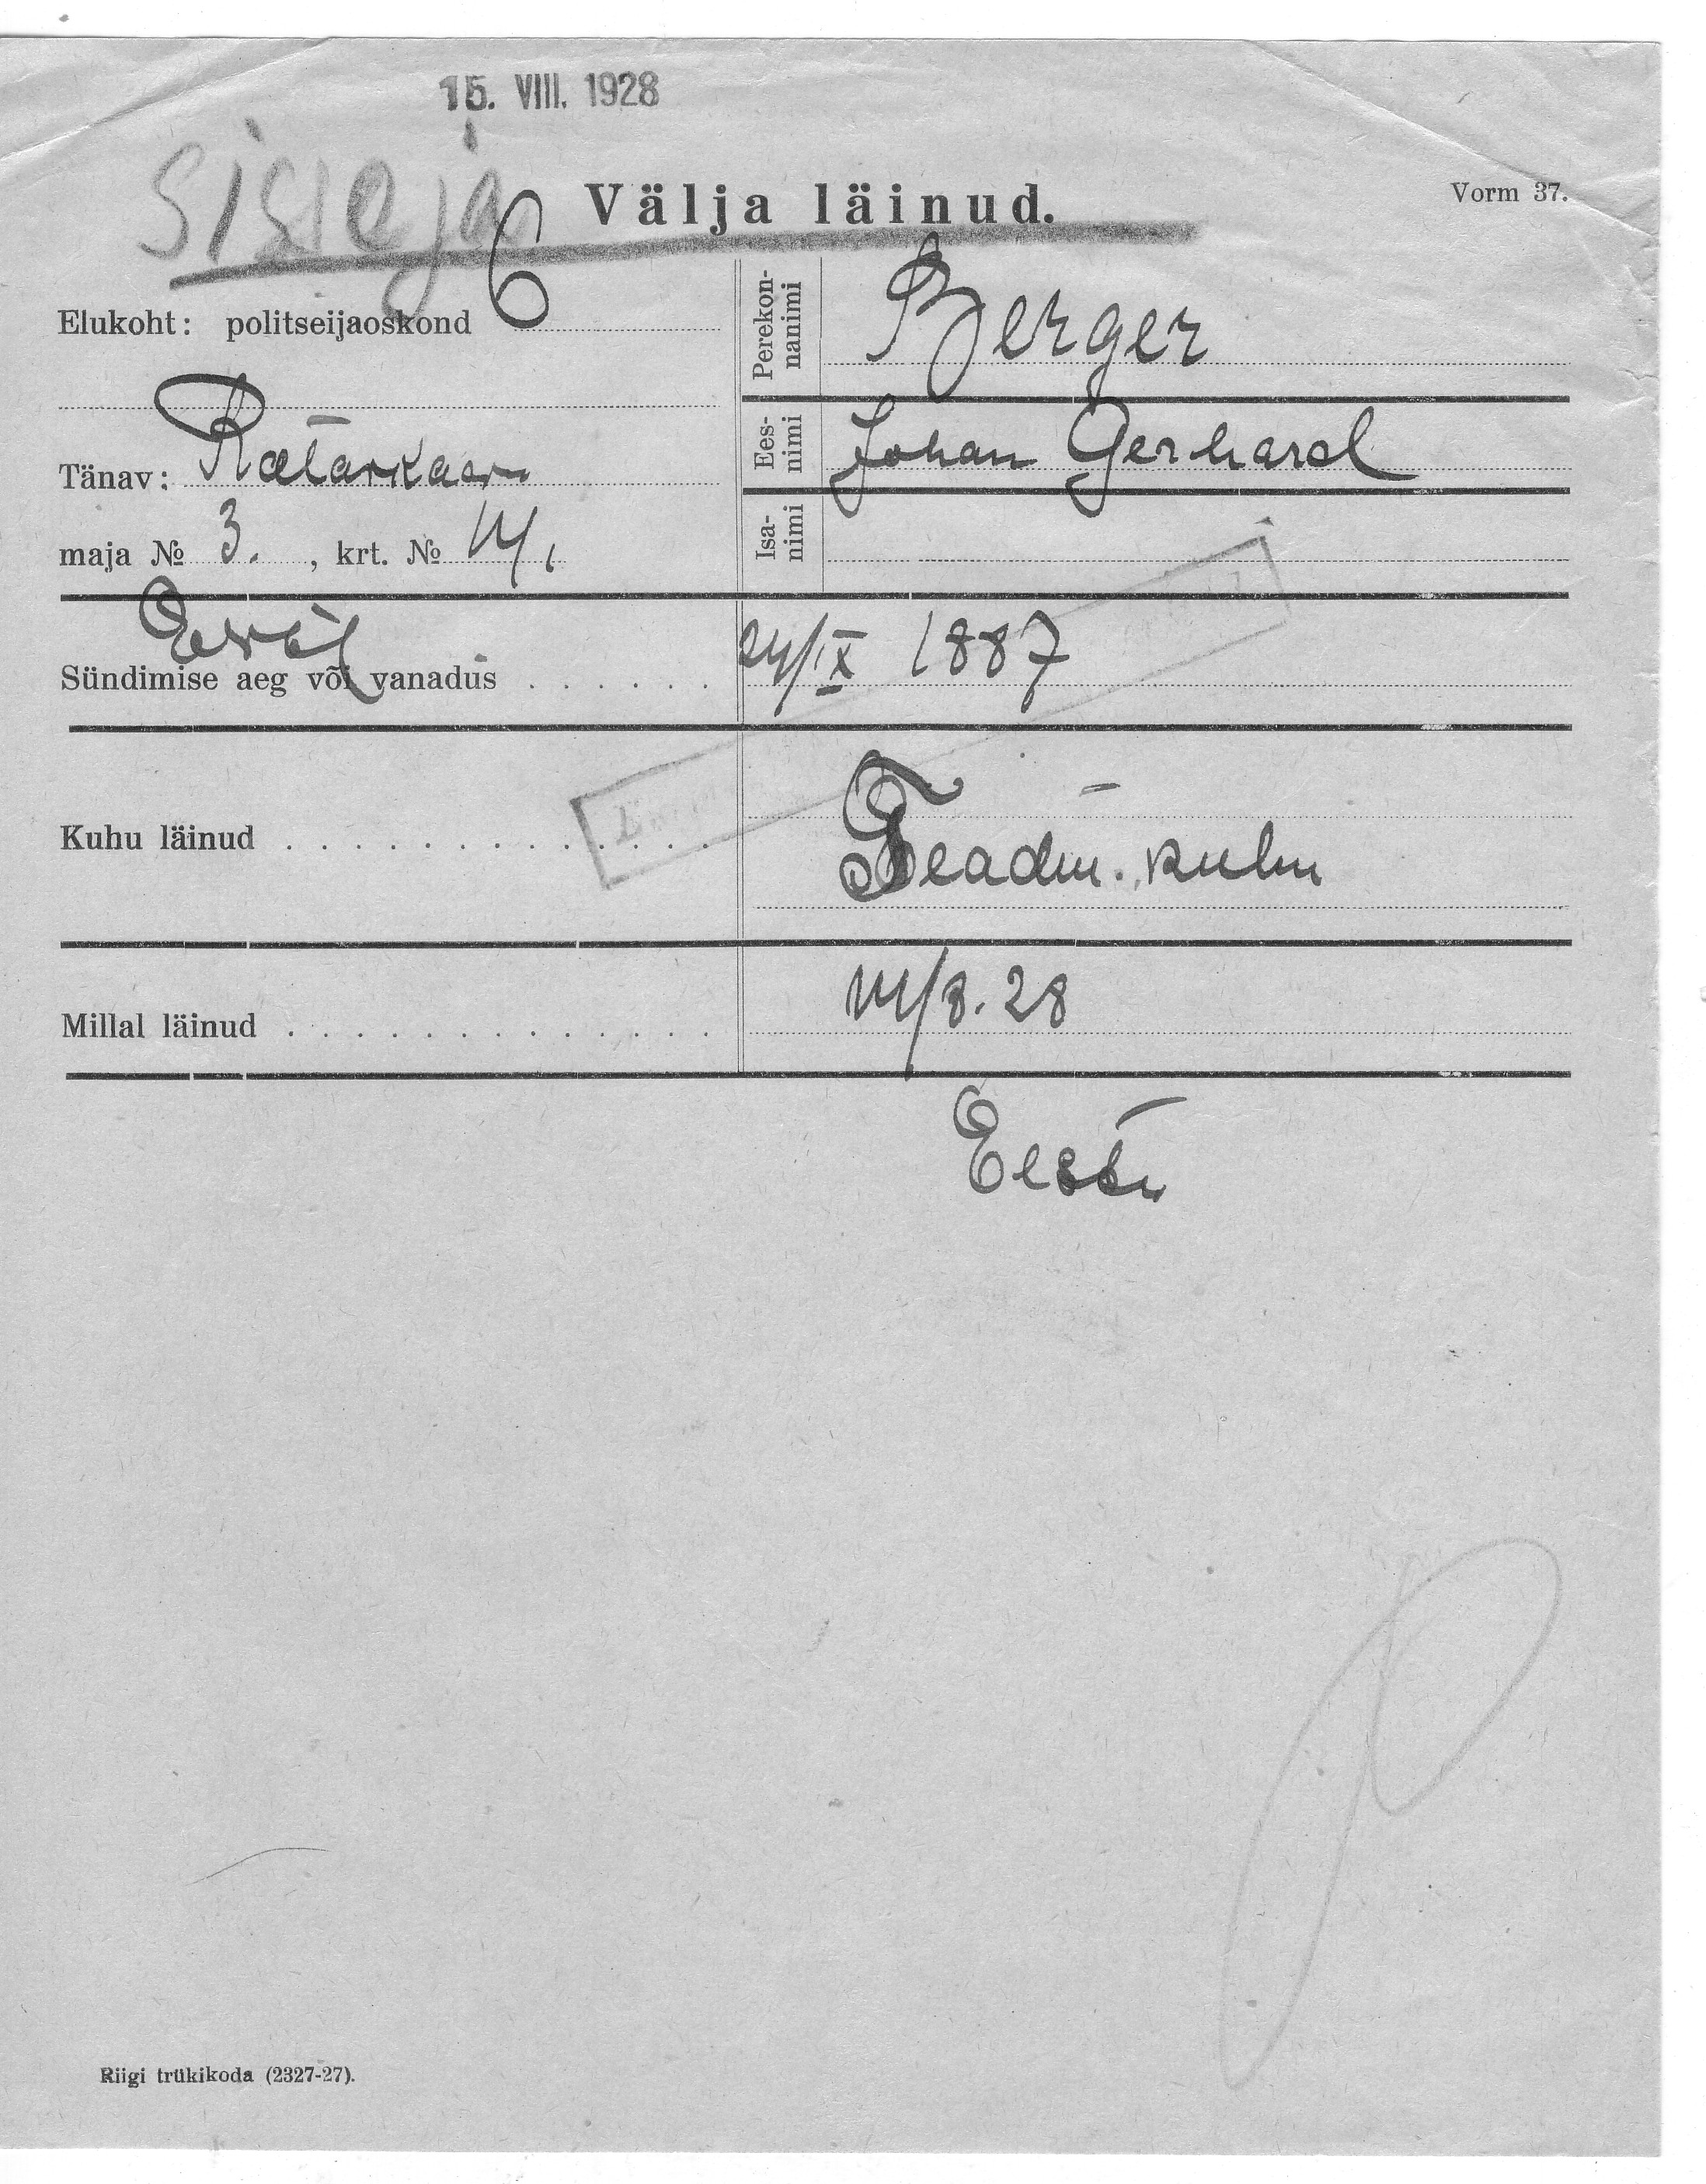 15. VIII. 1928
Välja läinud.
Vorm 37.
Elukoht: politseijaoskond 6
Tänav: Rataskaev
maja № 3. , krt. № 14,
Perekonnanimi Berger
Eesnimi Johan Gerhard
Isanimi
Sündimise aeg või vanadus . . . . . . 24/IX 1887
Kuhu läinud . . . . . . . . . . . . . Teadm.
Millal läinud . . . . . . . . . . . . . 14/8. 28
Eesti
Riigi trükikoda (2327-27).